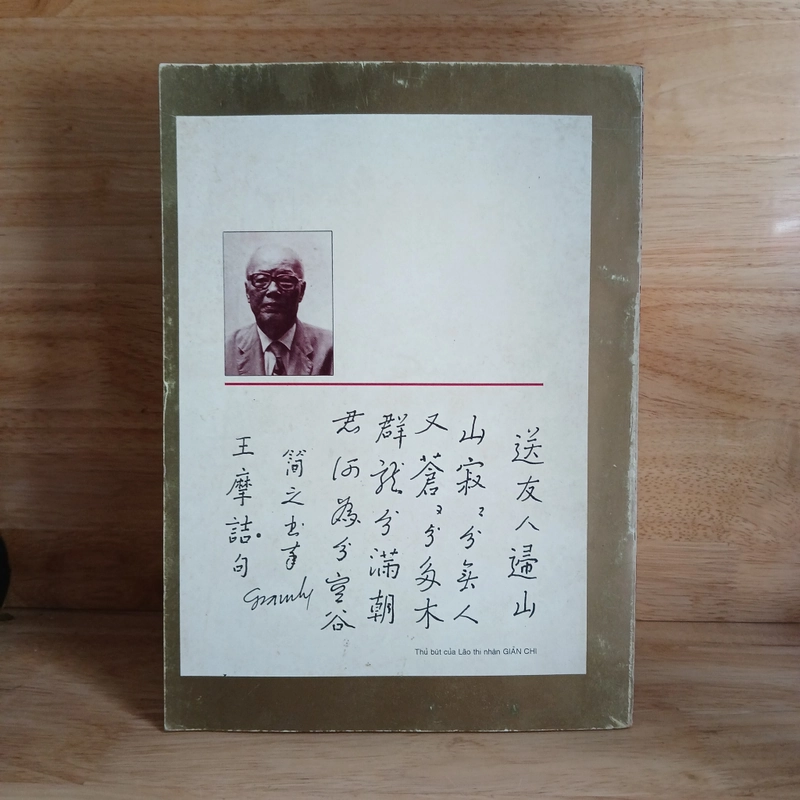 送友人歸山
山寂〻兮無人
又蒼〻兮多木
群龍兮滿朝
君何為兮空谷
簡之書
王摩詰句
Thủ bút của Lão thi nhân GIẢN CHI